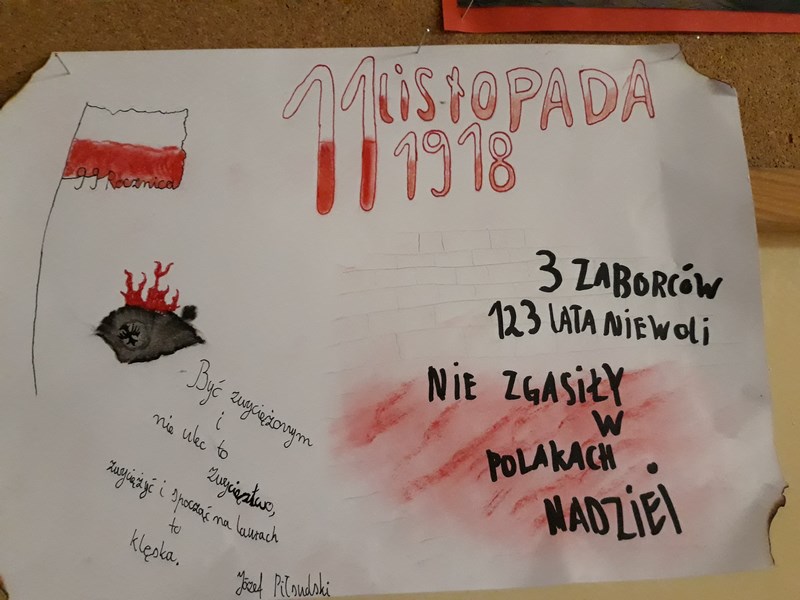 11 LISTOPADA
1918
99 Rocznica
3 ZABORCÓW
123 LATA NIEWOLI
NIE ZGASIŁY
W
POLAKACH
NADZIEI
Być zwyciężonym
i
nie ulec to
zwycięstwo,
zwyciężyć i spocząć na laurach
to
klęska.
Józef Piłsudski